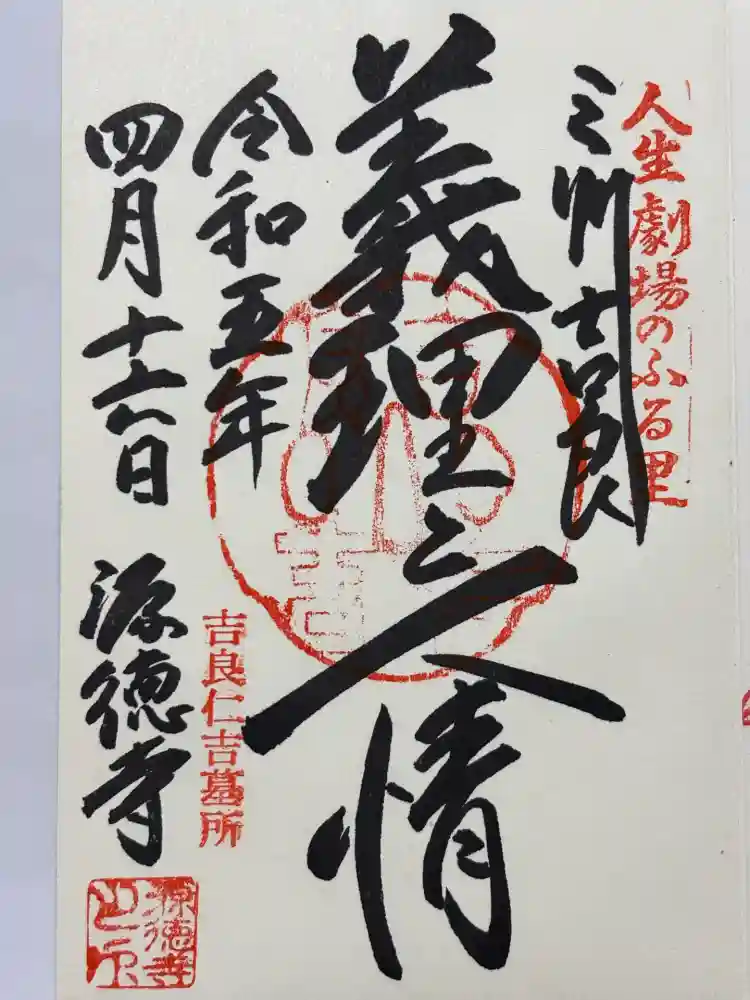 人生劇場のふる里
三州吉良
義理と人情
令和五年
四月十六日
源徳寺
吉良仁吉墓所
源徳寺之印